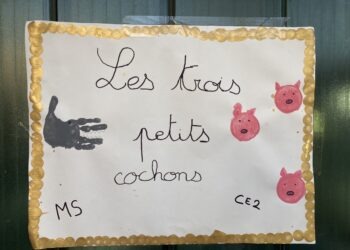 Les trois
petits
cochons
MS
CE2